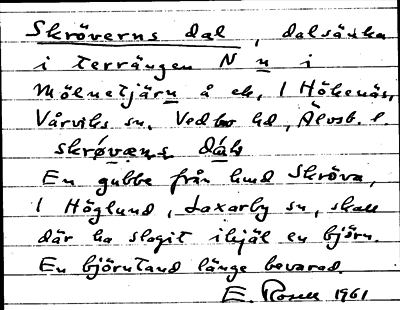 Skröverns dal, dalsänka
i terrängen N n i
Mölnetjärn å ek, 1 Hökenäs,
Vårviks sn, Vedbo hd, Älvsb. l.
skrøvæns dáḷ
En gubbe från hmd Skröva,
1 Höglund, Laxarby sn, skall
där ha slagit ihjäl en björn.
En björntand länge bevarad.
E. Rosell 1961